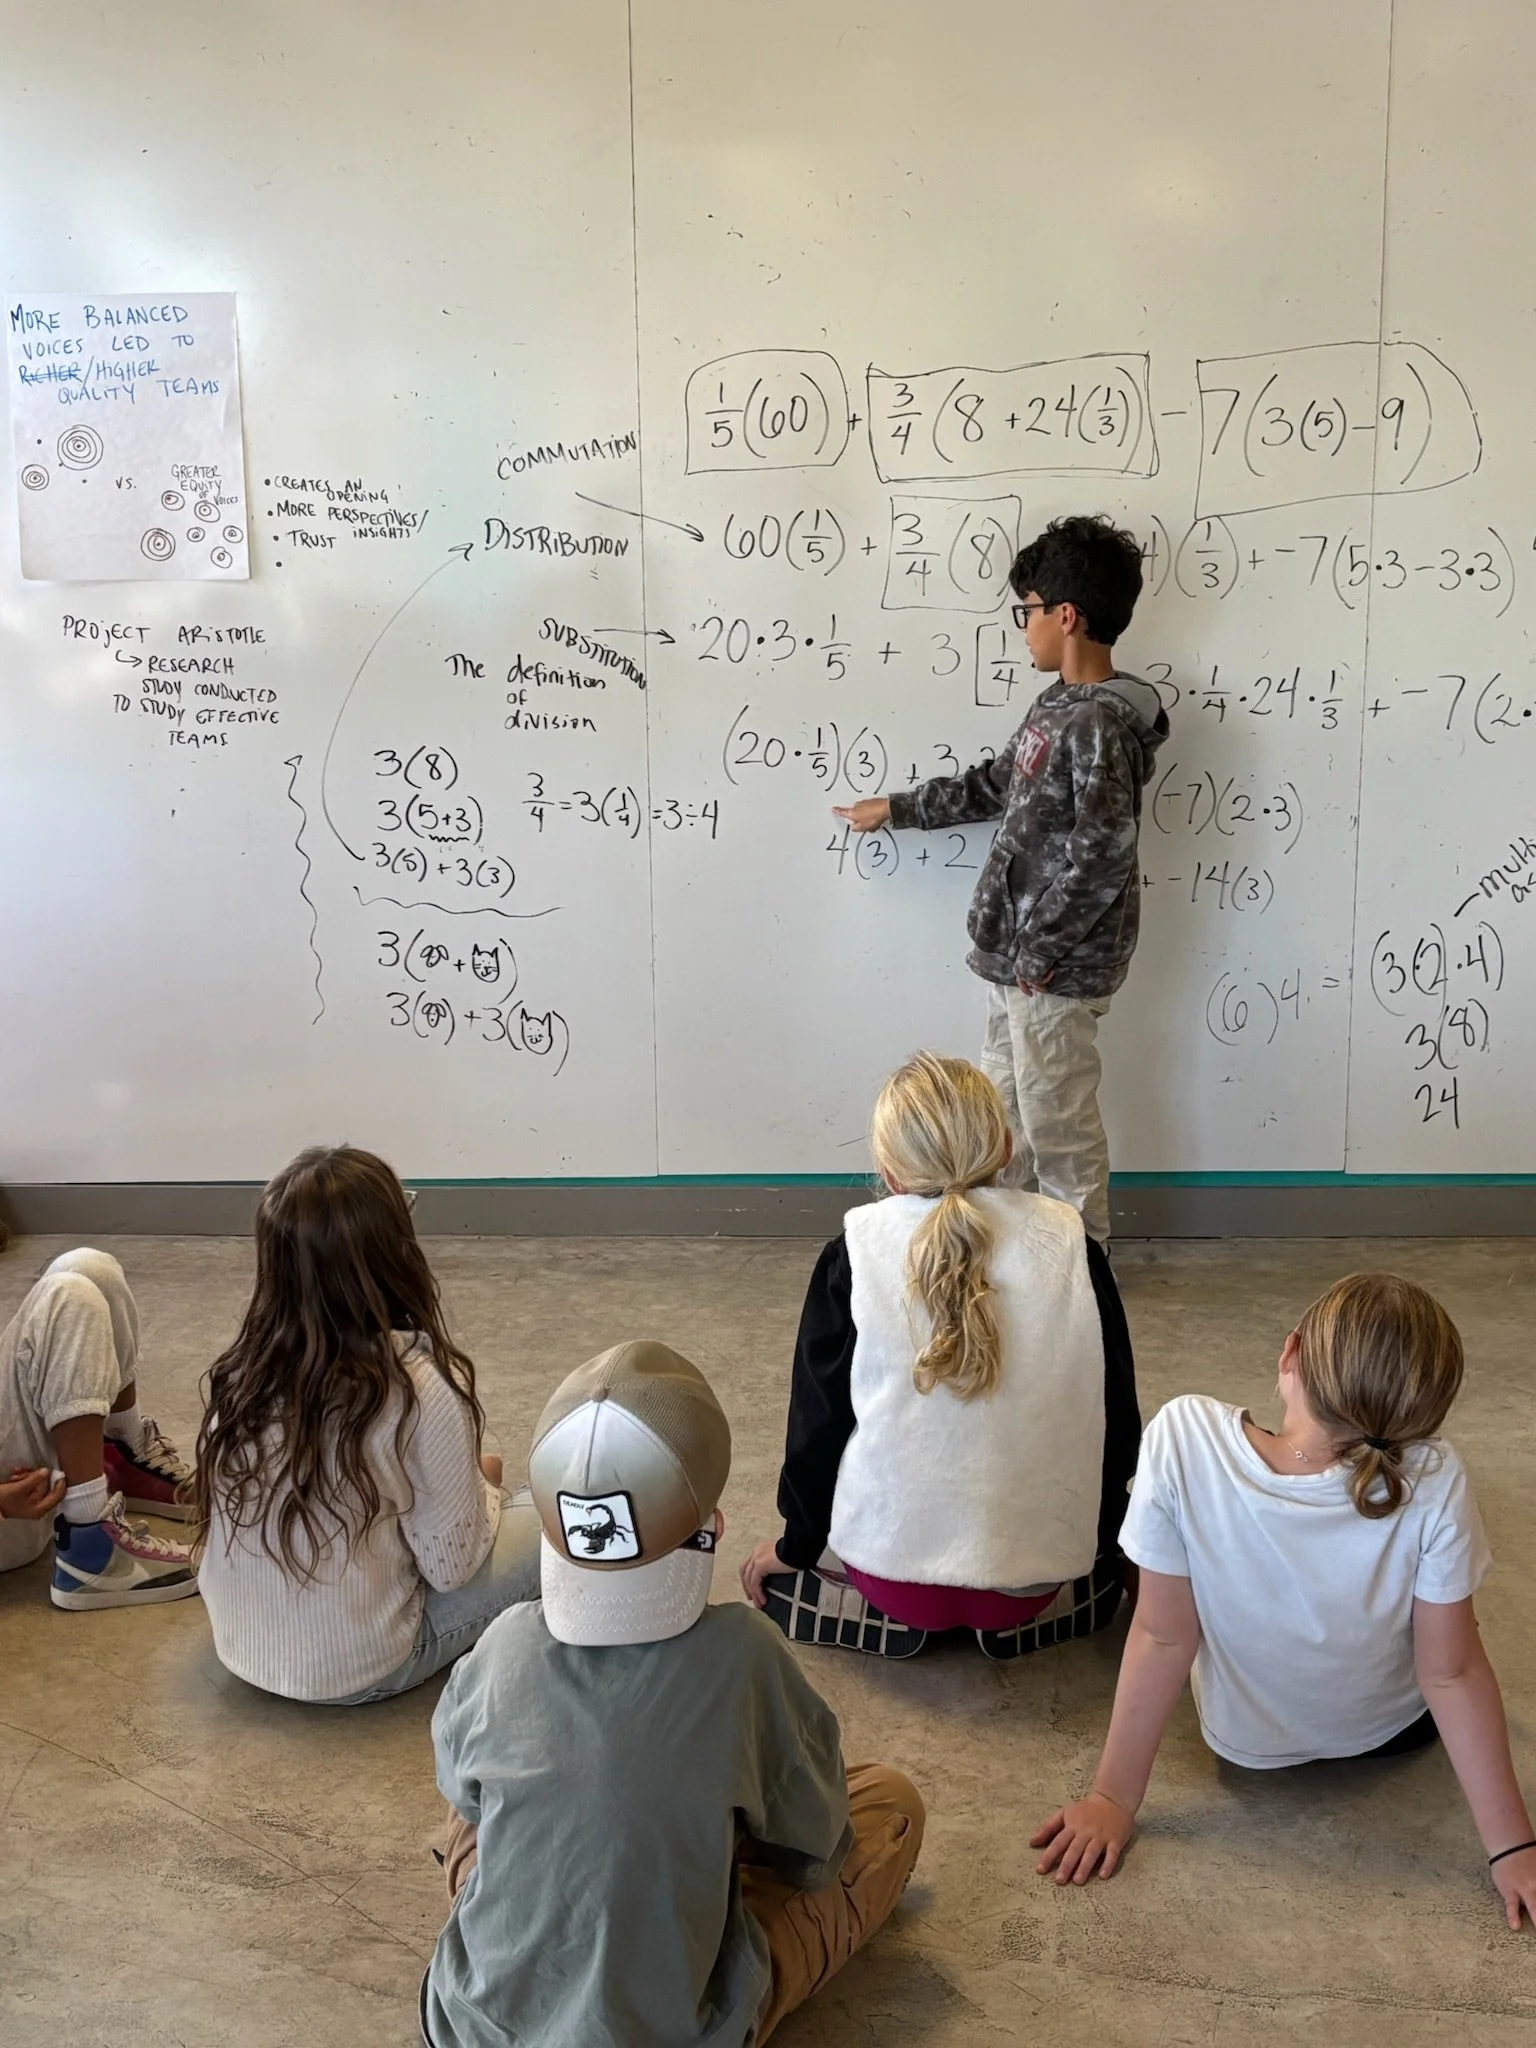 MORE BALANCED
VOICES LED TO
RICHER/HIGHER
QUALITY TEAMS
VS.
GREATER
EQUITY
OF VOICES
• CREATES AN
OPENING
• MORE PERSPECTIVES/
INSIGHTS
• TRUST
•
PROJECT ARISTOTLE
↳ RESEARCH
STUDY CONDUCTED
TO STUDY EFFECTIVE
TEAMS
COMMUTATION
DISTRIBUTION
SUBSTITUTION
The definition
of
division
3(8)
3(5+3)
3(5) + 3(3)
3/4 = 3(1/4) = 3÷4
3( + )
3( ) + 3( )
1/5(60) + 3/4(8 + 24(1/3)) - 7(3(5) - 9)
60(1/5) + 3/4(8) 4)(1/3) + -7(5·3 - 3·3)
20·3·1/5 + 3[1/4 3·1/4·24·1/3 + -7(2·
(20·1/5)(3) + 3· (-7)(2·3)
4(3) + 2 + -14(3)
(6)4 = (3·2)·4)
3(8)
24